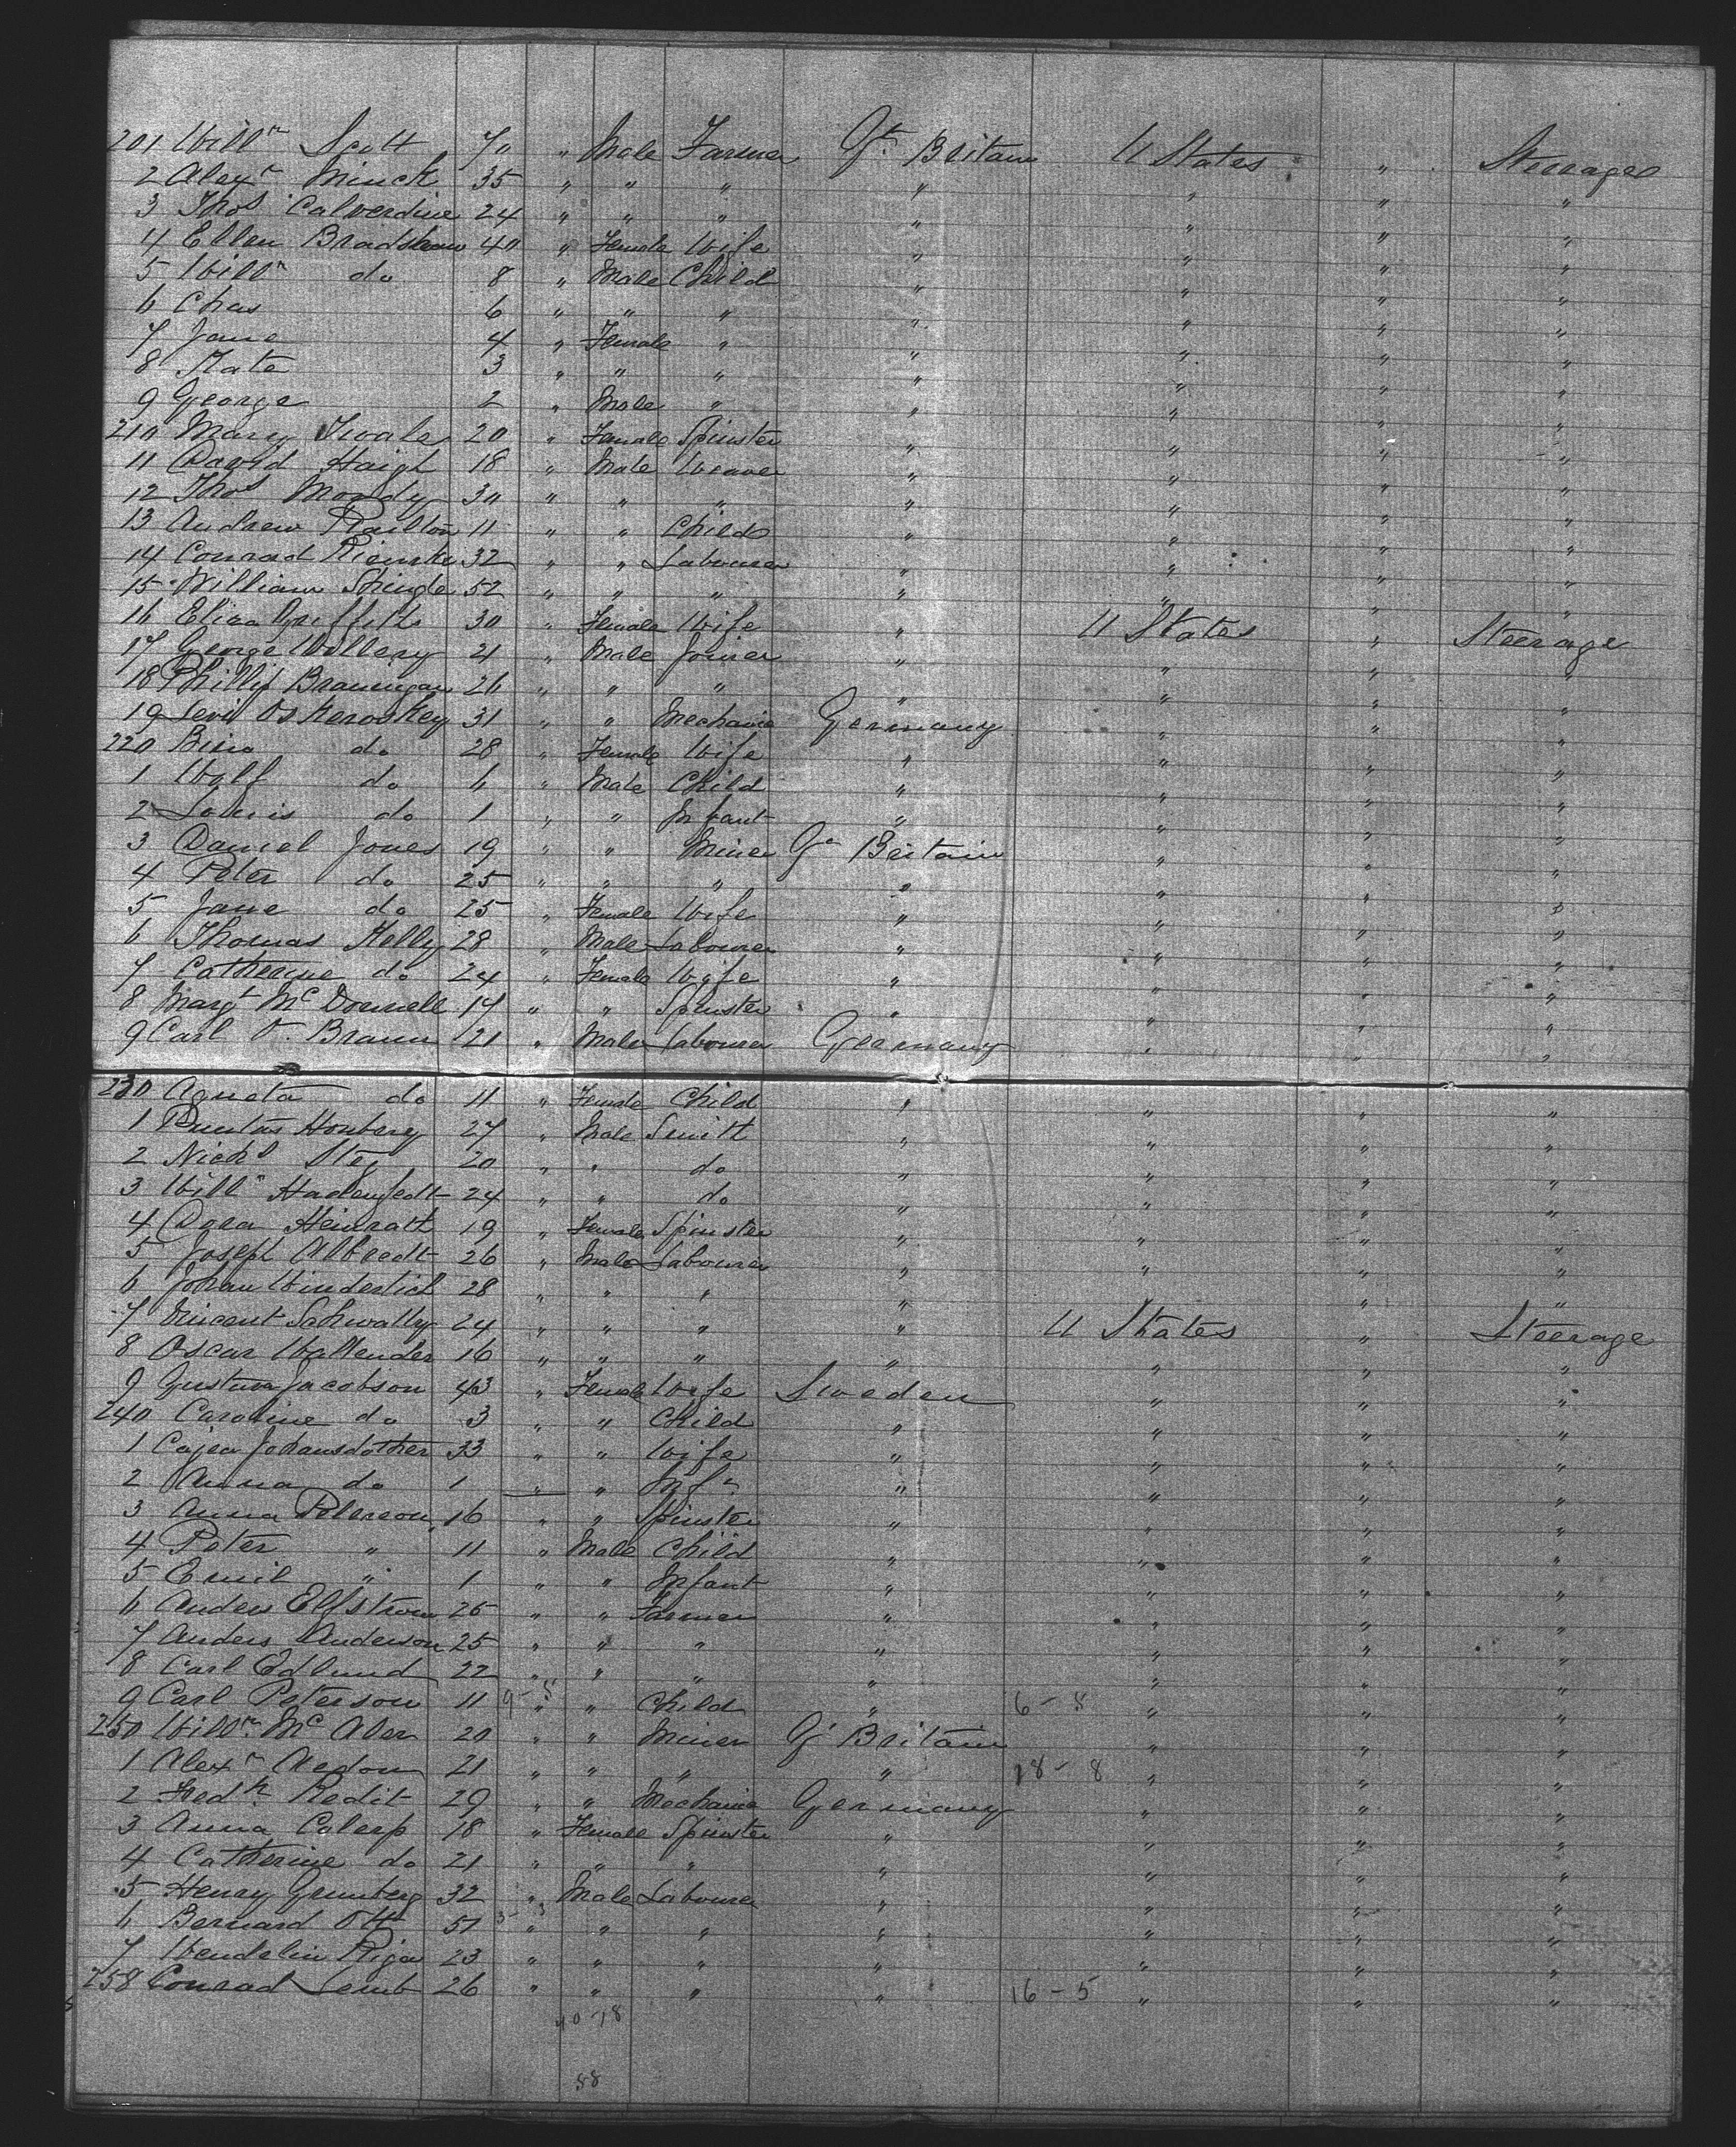 201 Willm Scott 70 " Male Farmer Gt Britain U States " Steerage
2 Alexr Minck 35 " " " " " " "
3 Thos Calverdine 24 " " " " " " "
4 Ellen Bradshaw 40 " Female Wife " " " "
5 Willm do 8 " Male Child " " " "
6 Chas 6 " " " " " " "
7 Jane 4 " Female " " " " "
8 Kate 3 " " " " " " "
9 George 2 " Male " " " " "
210 Mary Twale 20 " Female Spinster " " " "
11 David Haigh 18 " Male Weaver " " " "
12 Thos Moody 30 " " " " " " "
13 Andrew Railton 11 " " Child " " " "
14 Conrad 32 " " Labourer " " " "
15 William Shingle 52 " " " " " " "
16 Eliza Griffiths 30 " Female Wife " U States " Steerage
17 George Willery 21 " Male Joiner " " " "
18 Phillip Brannigan 26 " " " " " " "
19 Levi Oskeroskey 31 " " Mechanic Germany " " "
220 Bina do 28 " Female Wife " " " "
1 Wolf do 6 " Male Child " " " "
2 Louis do 1 " " Infant " " " "
3 Daniel Jones 19 " " Miner Gt Britain " " "
4 Peter do 25 " " " " " " "
5 Jane do 25 " Female Wife " " " "
6 Thomas Kelly 28 " Male Labourer " " " "
7 Catherine do 24 " Female Wife " " " "
8 Margt McDonnell 17 " " Spinster " " " "
9 Carl V. Braun 21 " Male Labourer Germany " " "
230 Agneta do 11 " Female Child " " " "
1 Honberg 27 " Male Smith " " " "
2 Nichs Steg 20 " " do " " " "
3 Willm Hadenfedt 24 " " do " " " "
4 Dora Heinratt 19 " Female Spinster " " " "
5 Joseph Albredt 26 " Male Labourer " " " "
6 Johan Winderlich 28 " " " " " " "
7 Vincent Schwally 24 " " " " U States " Steerage
8 Oscar Wallender 16 " " " " " " "
9 Gustava Jacobson 43 " Female Wife Sweden " " "
240 Caroline do 3 " " Child " " " "
1 Cajsa Johansdotter 33 " " Wife " " " "
2 Anna do 1 " " Inft " " " "
3 Anna Peterson 16 " " Spinster " " " "
4 Peter " 11 " Male Child " " " "
5 Emil " 1 " " Infant " " " "
6 Anders Elfstrom 25 " " Farmer " " " "
7 Anders Anderson 25 " " " " " " "
8 Carl Edlund 22 " " " " " " "
9 Carl Peterson 11 9-5 " " Child " 6-8 " " "
250 Willm Mc Aber 20 " " Miner Gt Britain " " "
1 Alexr Aedom 21 " " " " 18-8 " " "
2 Fredk Redit 29 " " Mechanic Germany " " "
3 Anna Calerp 18 " Female Spinster " " " "
4 Catherine do 21 " " " " " " "
5 Henry Grunberg 32 " Male Labourer " " " "
6 Bernard Ott 51 3-3 " " " " " " "
7 Wendelin Riga 23 " " " " " " "
258 Conrad Lemb 26 " " " " 16-5 " " "
40-18
58